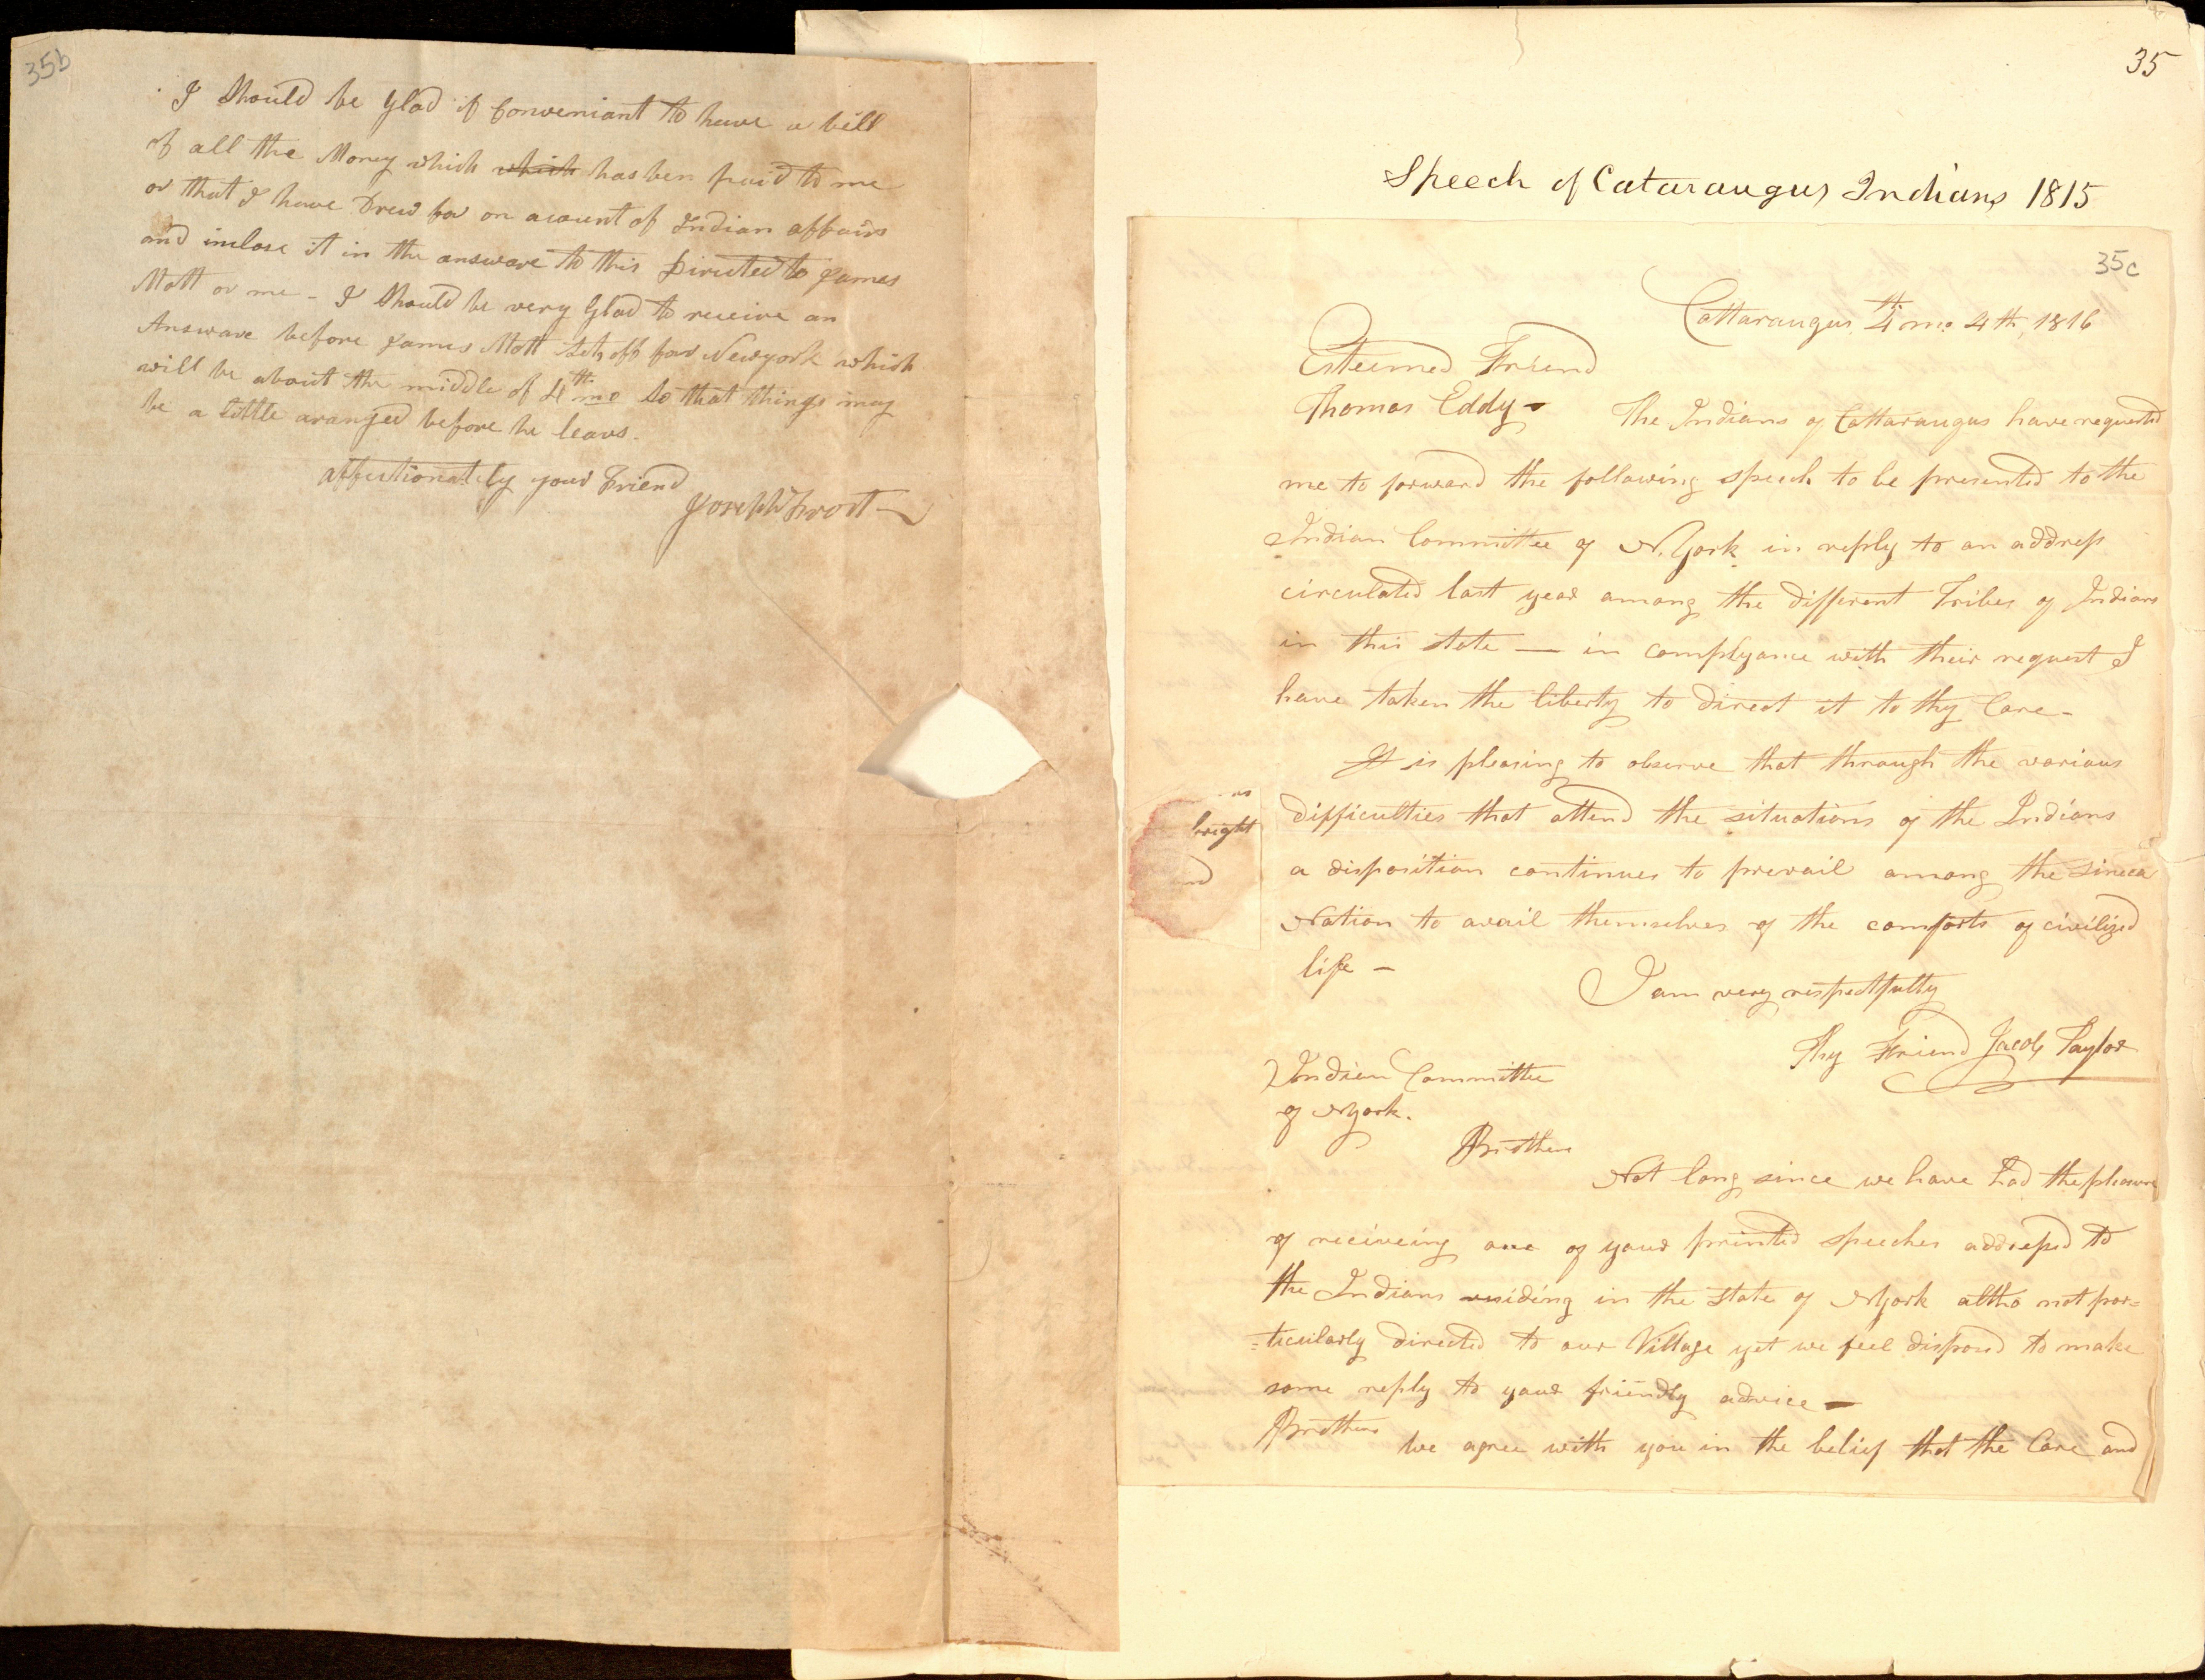 35b
I Should be Glad if Conveniant to have a bill
of all the Money which which has ben paid to me
or that I have Drew for on acount of Indian affairs
and inclose it in the answare to this Directed to James
Mott or me - I Should be very Glad to receive an
Answare before James Mott Sets off for Newyork which
will be about the middle of 4th mo So that things may
be a little aranged before he leavs.
affectionately your Friend
Joseph Frost
35
Speech of Cataraugus Indians 1815
35c
Cattaraugus 4th mo. 4th, 1816
Esteemed Friend
Thomas Eddy - The Indians of Cattaraugus have requested
me to forward the following speech to be presented to the
Indian Committee of N. York in reply to an address
circulated last year among the different Tribes of Indians
in this state — in complyance with their request I
have taken the liberty to direct it to thy Care -
It is pleasing to observe that through the various
difficulties that attend the situations of the Indians
a disposition continues to prevail among the Sineca
Nation to avail themselves of the comforts of civilized
life -
I am very respectfully
Thy Friend Jacob Taylor
as
bright
and
Indian Committee
of NYork.
Brothers
Not long since we have had the pleasure
of receiveing one of your printed speeches addressed to
the Indians residing in the State of NYork altho not par=
=ticularly directed to our Village yet we feel disposed to make
some reply to your friendly advice -
Brothers We agree with you in the belief that the Care and